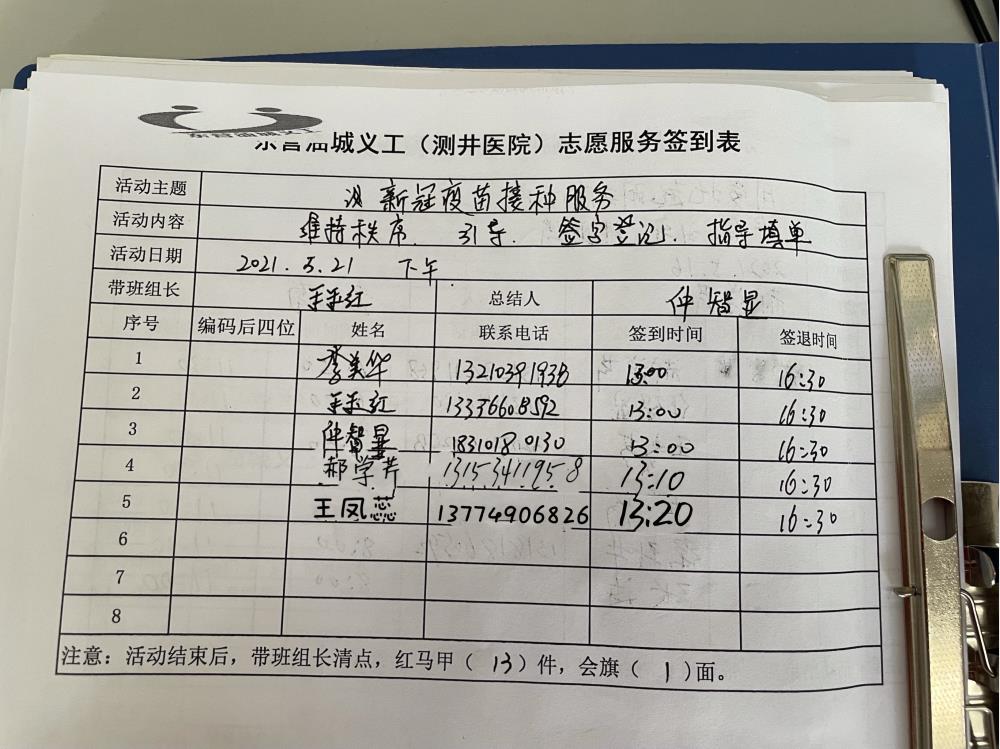 东营油城义工
东营油城义工（测井医院）志愿服务签到表
活动主题 新冠疫苗接种服务
活动内容 维持秩序、引导、签字登记、指导填单
活动日期 2021.5.21 下午
带班组长 王玉红 总结人 仲智显
序号 编码后四位 姓名 联系电话 签到时间 签退时间
1 李美华 13210391938 13:00 16:30
2 王玉红 13336608592 13:00 16:30
3 仲智显 18310180130 13:00 16:30
4 郝学芹 13153411958 13:10 16:30
5 王凤蕊 13774906826 13:20 16:30
6
7
8
注意：活动结束后，带班组长清点，红马甲（ 13 ）件，会旗（ 1 ）面。